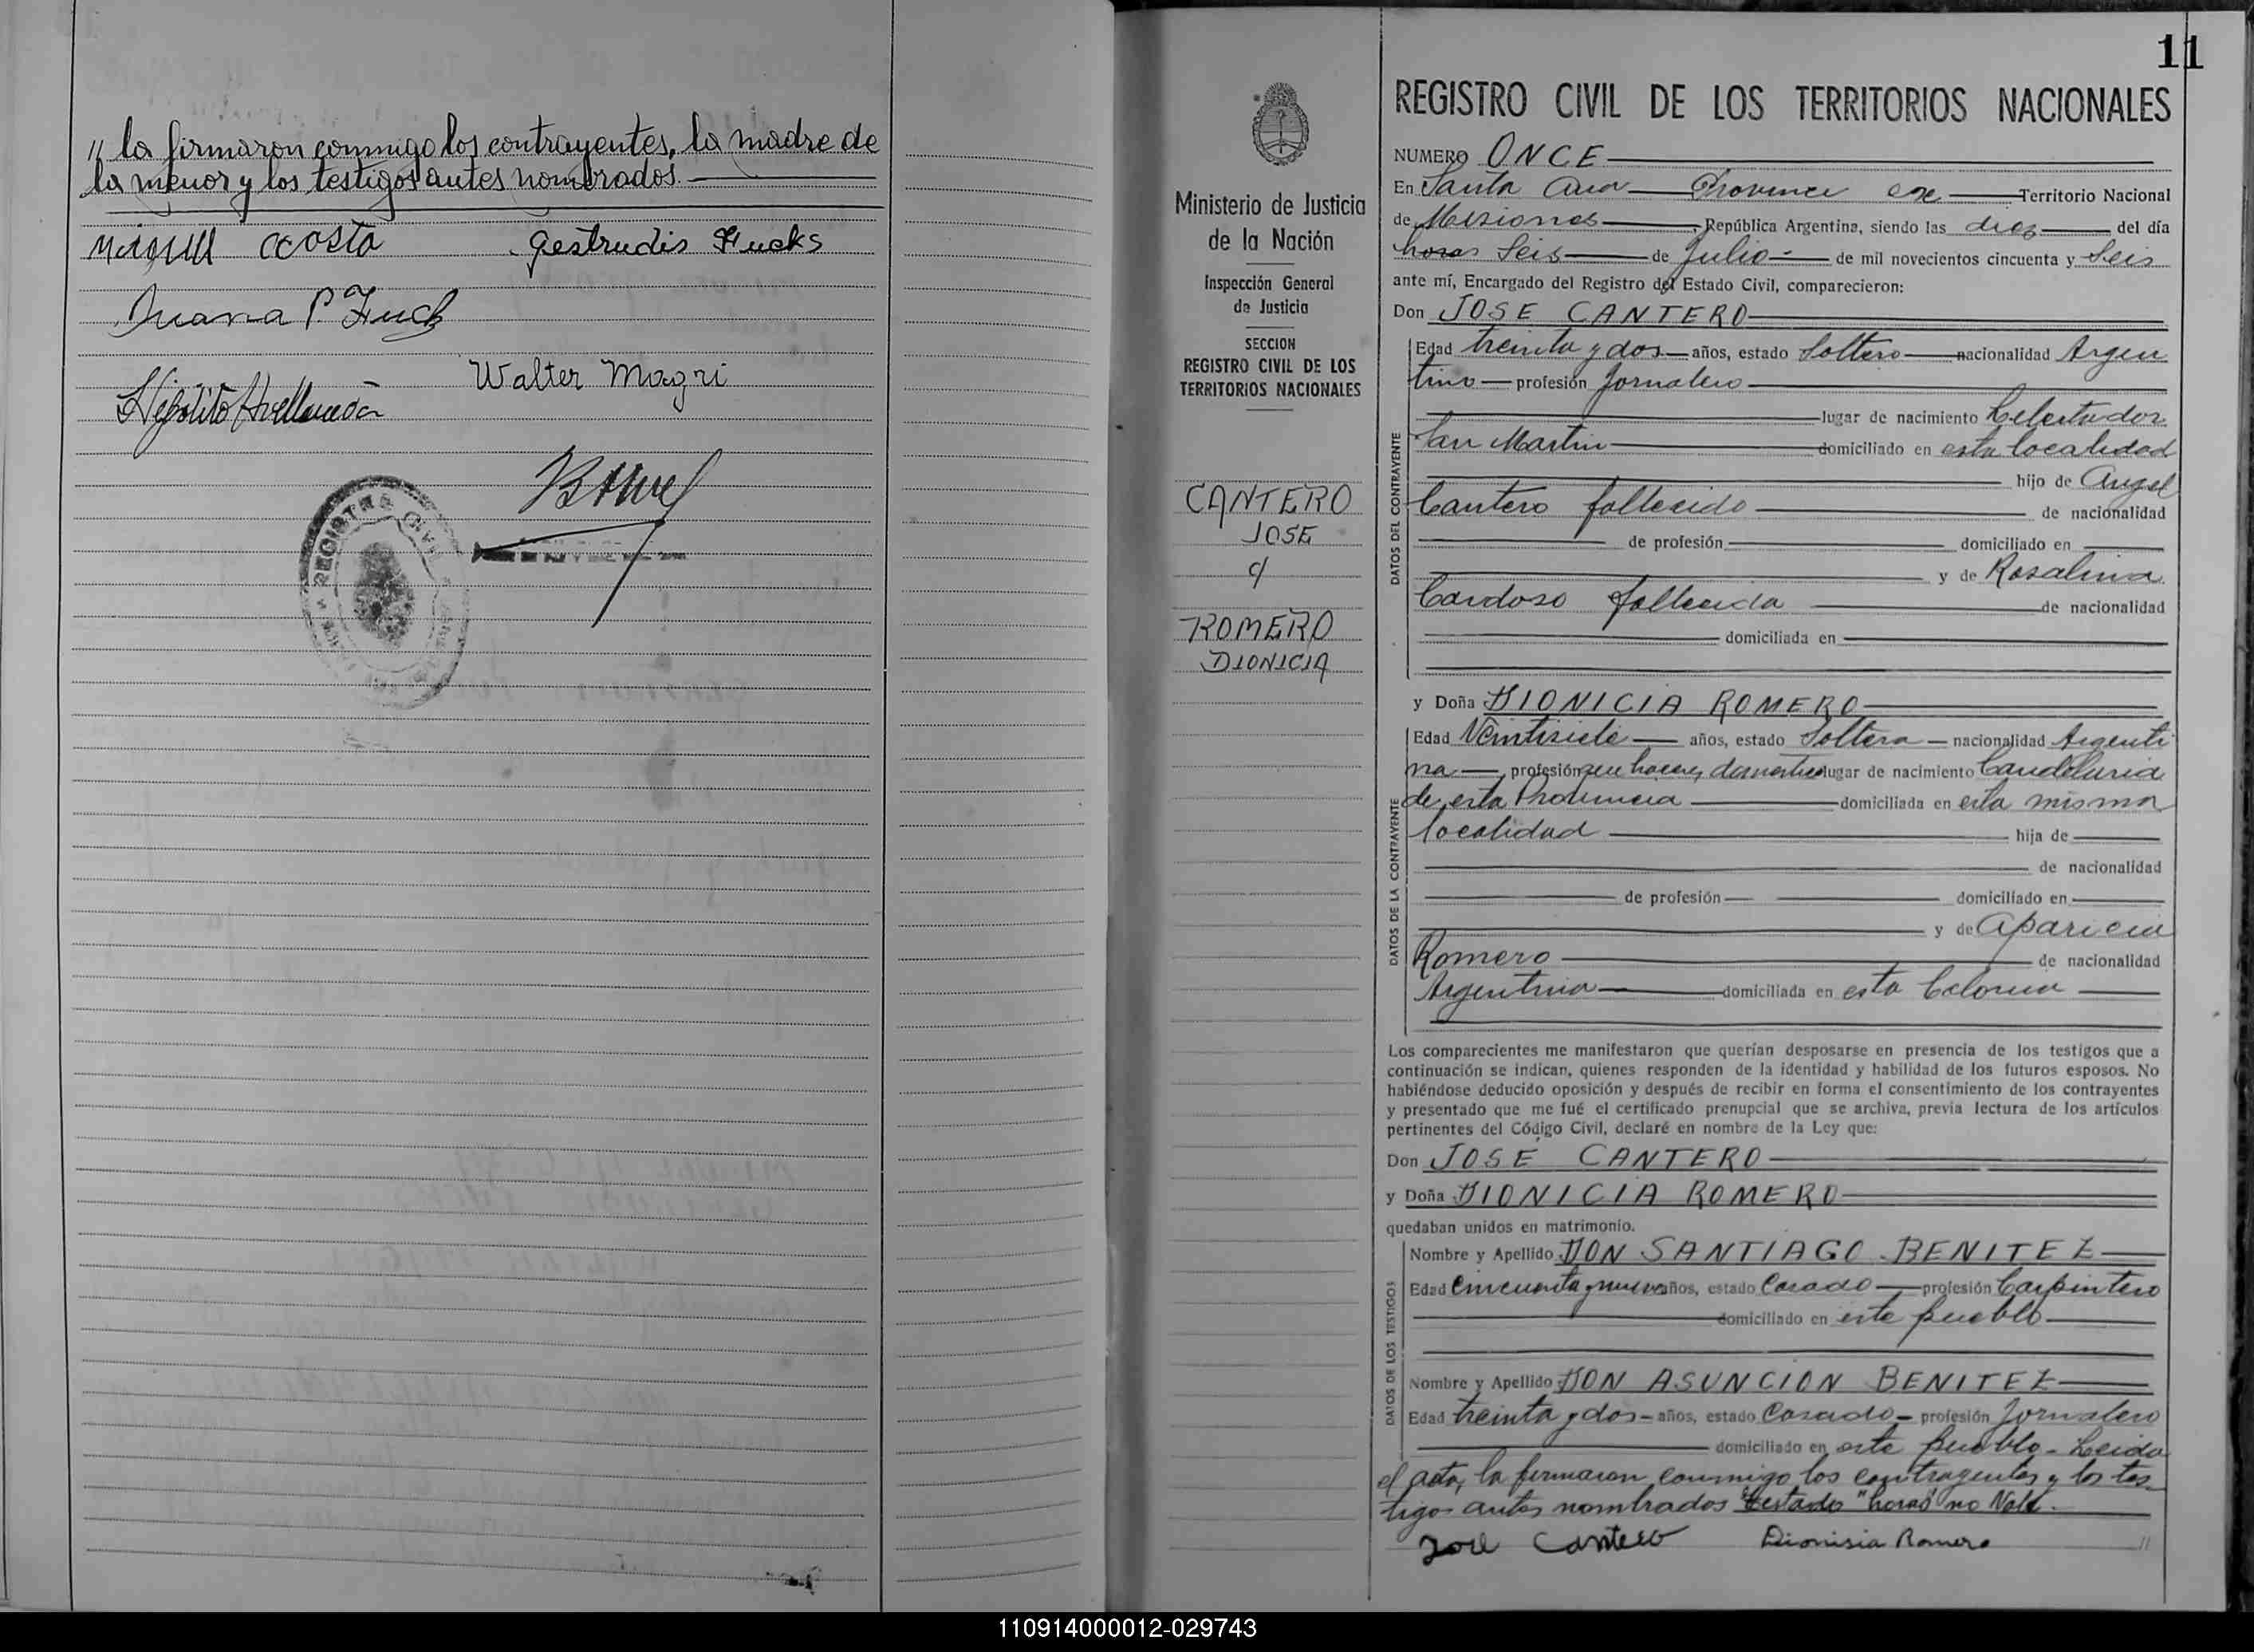 // la firmaron conmigo los contrayentes, la madre de
la menor y los testigos antes nombrados.
Miguel Acosta Gestrudis Fucks
Juana P. Fuch
Hipólito Avellaneda Walter Magri
REGISTRO CIVIL
11
Ministerio de Justicia
de la Nación
Inspección General
de Justicia
SECCION
REGISTRO CIVIL DE LOS
TERRITORIOS NACIONALES
CANTERO
JOSE
c/
ROMERO
DIONICIA
REGISTRO CIVIL DE LOS TERRITORIOS NACIONALES
NUMERO ONCE
En Santa Ana Provincia exe Territorio Nacional
de Misiones, República Argentina, siendo las diez del día
horas Seis de Julio de mil novecientos cincuenta y Seis
ante mí, Encargado del Registro del Estado Civil, comparecieron:
Don JOSE CANTERO
DATOS DEL CONTRAYENTE
Edad treinta y dos años, estado Soltero nacionalidad Argen
tino profesión Jornalero
lugar de nacimiento Libertador
San Martin domiciliado en esta localidad
hijo de Angel
Cantero fallecido de nacionalidad
de profesión domiciliado en
y de Rosalina
Cardoso fallecida de nacionalidad
domiciliada en
y Doña DIONICIA ROMERO
DATOS DE LA CONTRAYENTE
Edad Veintisiete años, estado Soltera nacionalidad Argenti
na profesión que haceres domesticos lugar de nacimiento Candelaria
de esta Provincia domiciliada en esta misma
localidad hija de
de nacionalidad
de profesión domiciliado en
y de Aparicia
Romero de nacionalidad
Argentina domiciliada en esta Colonia
Los comparecientes me manifestaron que querían desposarse en presencia de los testigos que a
continuación se indican, quienes responden de la identidad y habilidad de los futuros esposos. No
habiéndose deducido oposición y después de recibir en forma el consentimiento de los contrayentes
y presentado que me fué el certificado prenupcial que se archiva, previa lectura de los artículos
pertinentes del Código Civil, declaré en nombre de la Ley que:
Don JOSE CANTERO
y Doña DIONICIA ROMERO
quedaban unidos en matrimonio.
DATOS DE LOS TESTIGOS
Nombre y Apellido DON SANTIAGO BENITEZ
Edad Cincuenta y nueve años, estado Casado profesión Carpintero
domiciliado en este pueblo
Nombre y Apellido DON ASUNCION BENITEZ
Edad treinta y dos años, estado Casado profesión Jornalero
domiciliado en este pueblo - Leida
el acta, la firmaron conmigo los contrayentes y los tes-
tigos antes nombrados testado "horas" no Vale.
José Cantero Dionisia Romero //
110914000012-029743